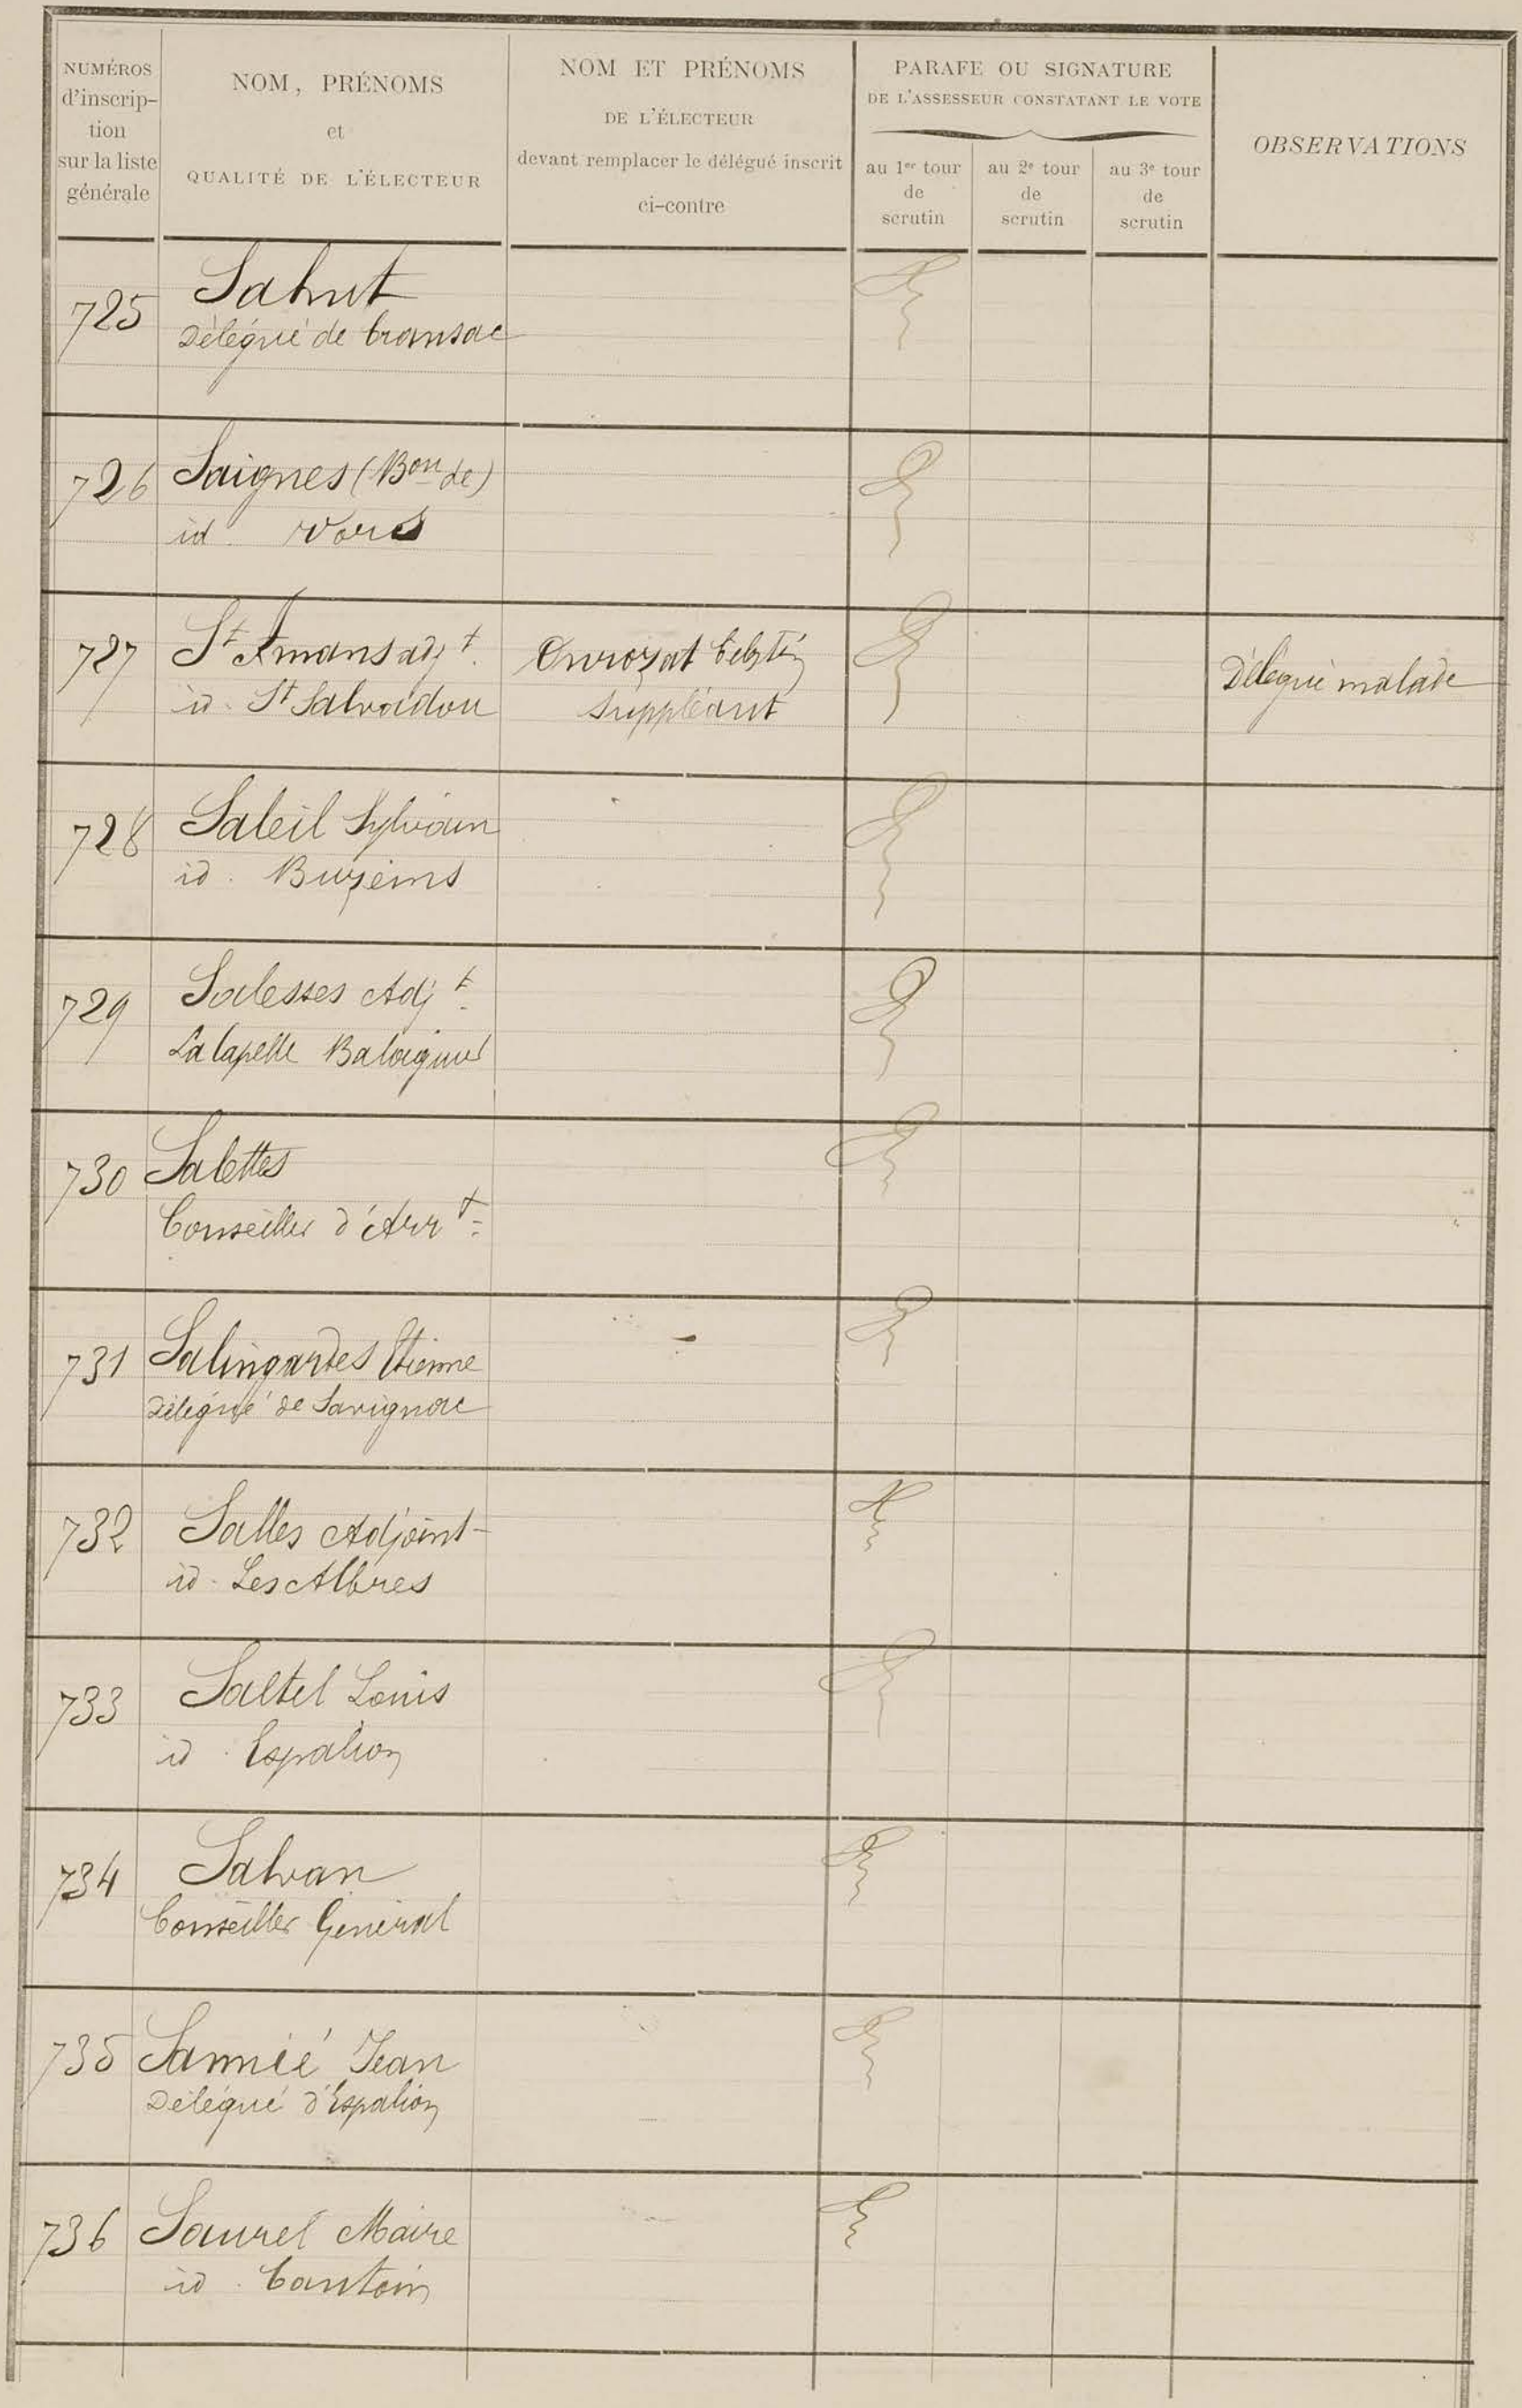 NUMÉROS
d'inscrip-
tion
sur la liste
générale
NOM, PRÉNOMS
et
QUALITÉ DE L'ÉLECTEUR
NOM ET PRÉNOMS
DE L'ÉLECTEUR
devant remplacer le délégué inscrit
ci-contre
PARAFE OU SIGNATURE
DE L'ASSESSEUR CONSTATANT LE VOTE
au 1er tour
de
scrutin
au 2e tour
de
scrutin
au 3e tour
de
scrutin
OBSERVATIONS
725 Sahut
Délégué de Cransac
726 Saignes (Bon de)
id. Vors
727 St Amans adjt.
id. St Salvadou
suppléant
Délégué malade
728 Saleil Sylvain
id. Buzeins
729 Salesses Adjt.
La Capelle Balaguier
730 Salettes
Conseiller d'Arrt.
731 Salingardes Etienne
Délégué de Savignac
732 Salles Adjoint
id. Les Albres
733 Saltel Louis
id. Espalion
734 Salvan
Conseiller Général
735 Sannié Jean
Délégué d'Espalion
736 Saurel Maire
id. Cantoin